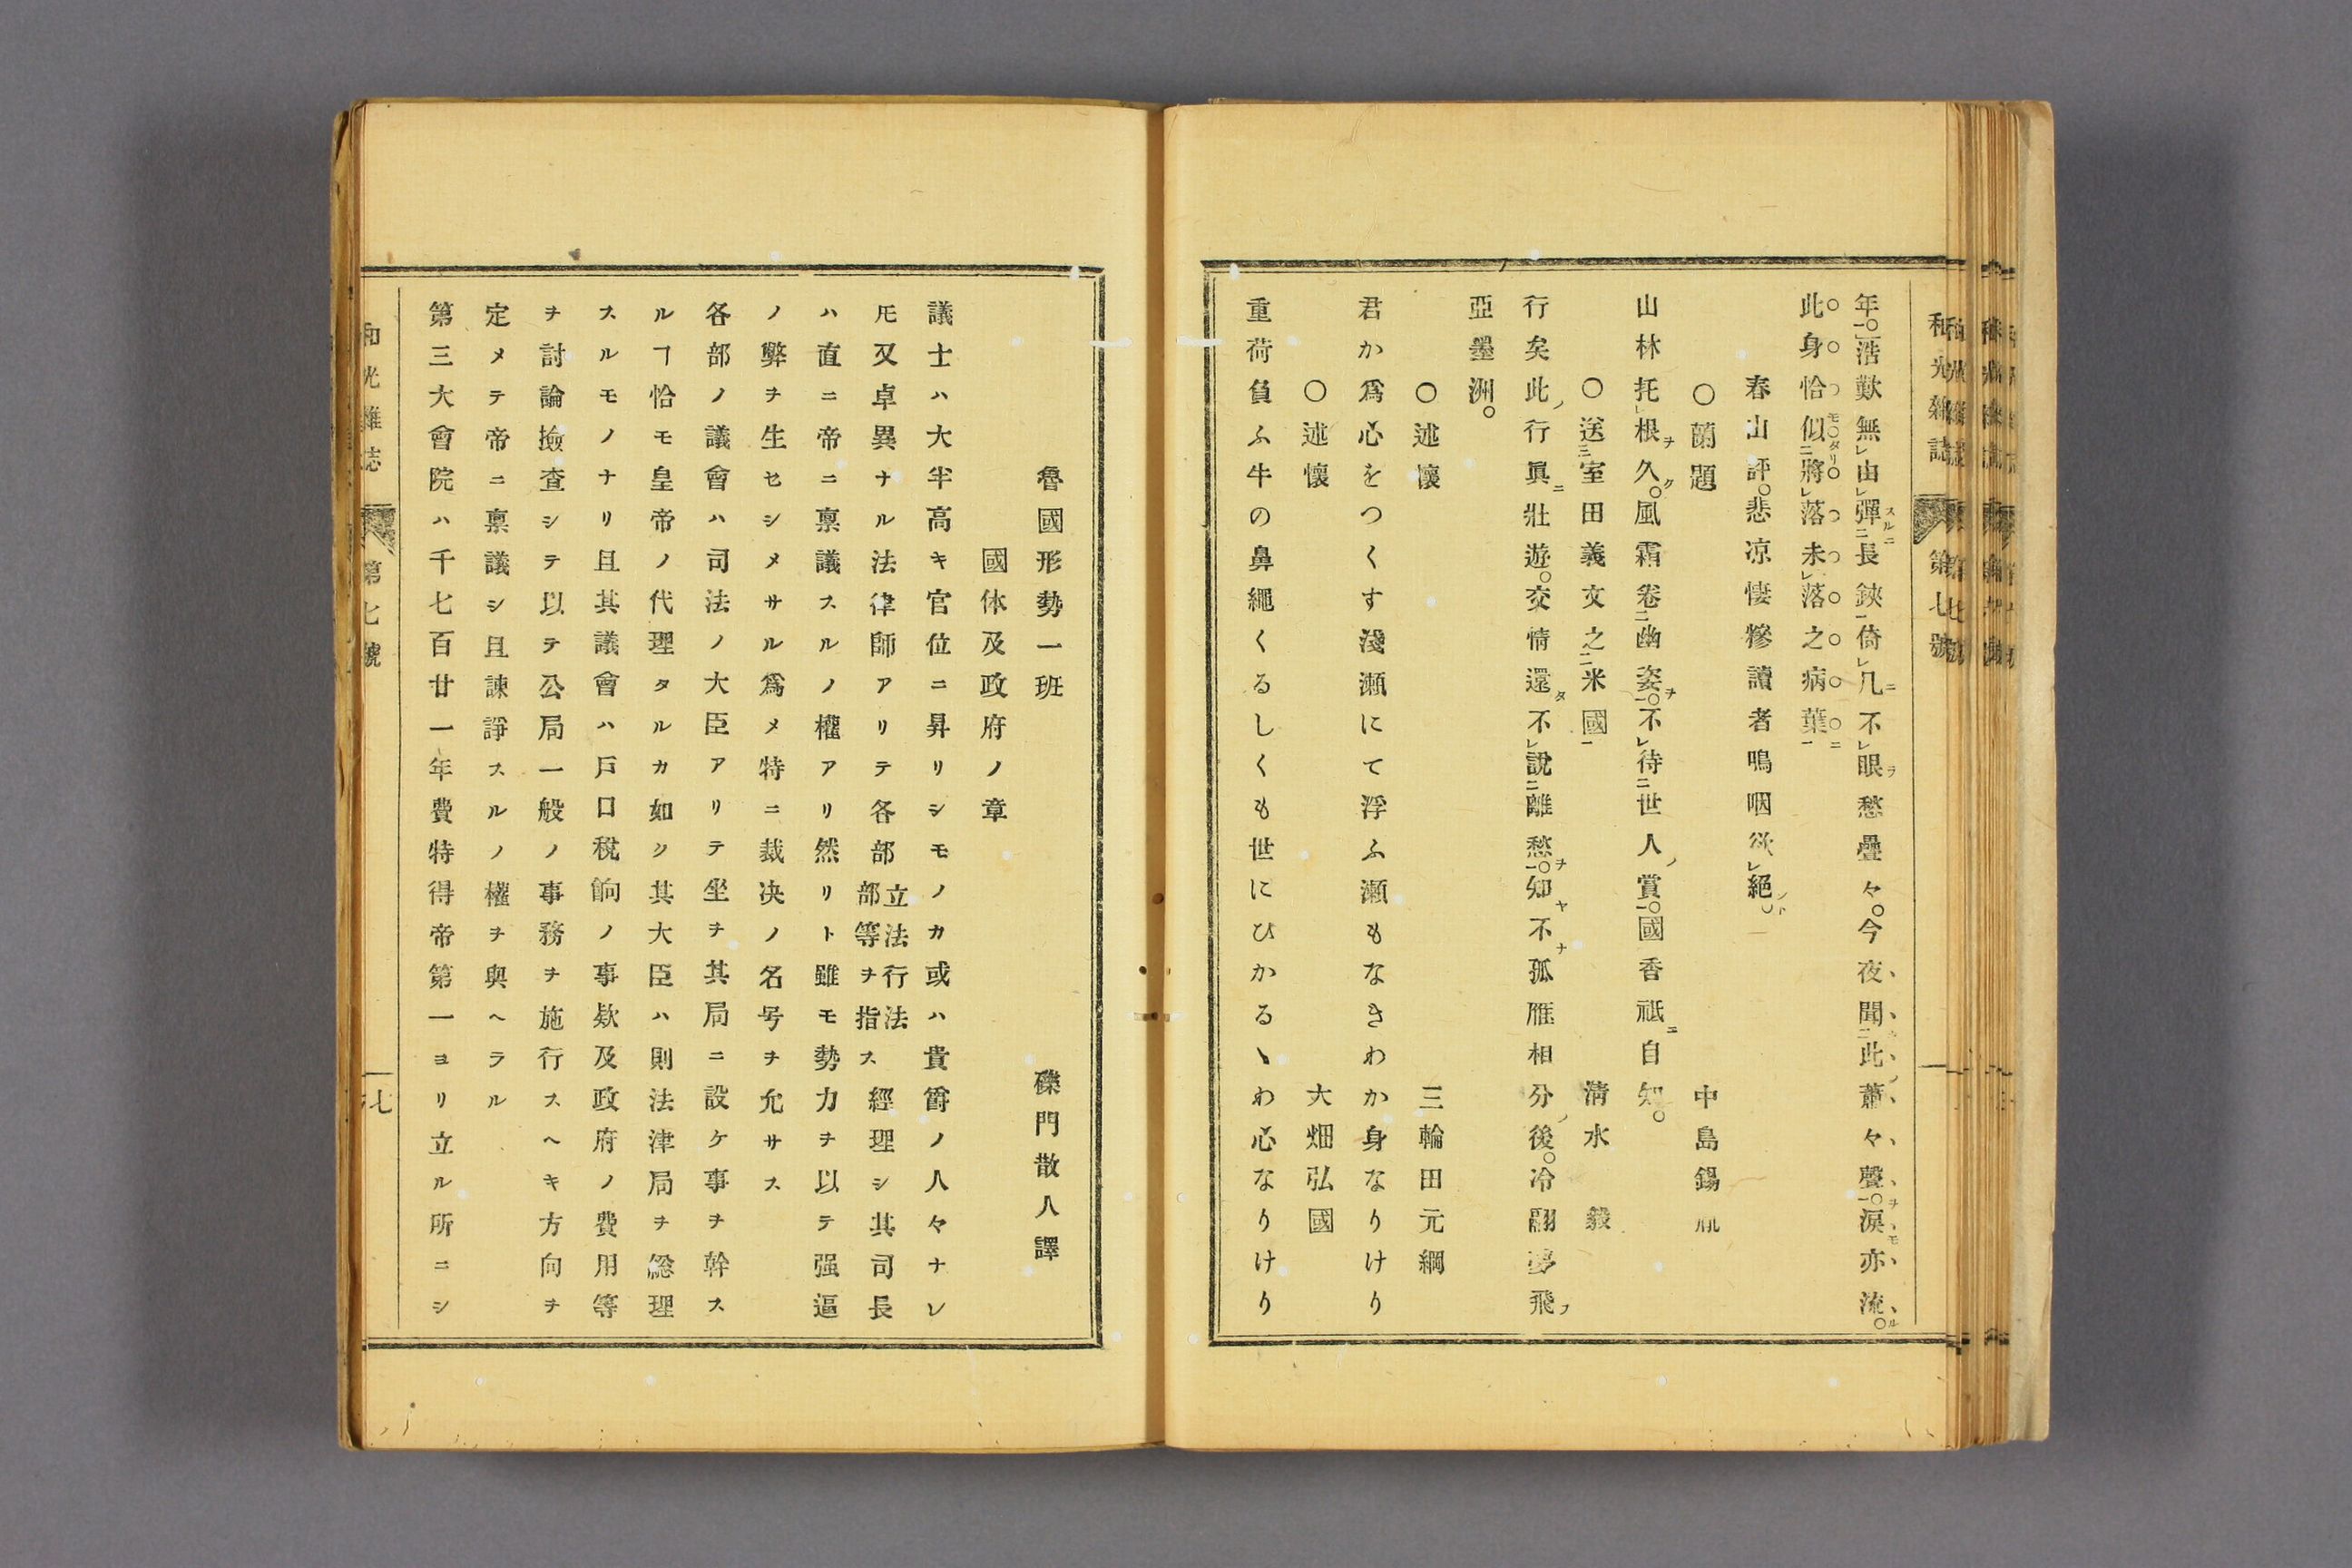 年。浩歎無由彈長鋏倚几不眠愁疊々。今夜聞此蕭々聲。涙亦流。
此身恰似將落未落之病葉
春山評。悲凉悽慘讀者鳴咽欲絕。
○蘭題 中島錫胤
山林托根久。風霜卷幽姿。不待世人賞。國香祗自知。
○送室田義文之米國 淸水毅
行矣此行眞壯遊。交情還不說離愁。知不孤雁相分後。冷翻夢飛
亞墨洲。
○述懷 三輪田元綱
君か爲心をつくす淺瀬にて浮ふ瀬もなきわか身なりけり
○述懷 大畑弘國
重荷負ふ牛の鼻繩くるしくも世にひかるゝわ心なりけり
和光雜誌 第七號
魯國形勢一班 磯門散人譯
國体及政府ノ章
議士ハ大半高キ官位ニ昇リシモノカ或ハ貴爵ノ人々ナレ
𪜈又卓異ナル法律師アリテ各部立法行法部等ヲ指ス經理シ其司長
ハ直ニ帝ニ禀議スルノ權アリ然リト雖モ勢力ヲ以テ强逼
ノ弊ヲ生セシメサル爲メ特ニ裁决ノ名号ヲ允サス
各部ノ議會ハ司法ノ大臣アリテ坐ヲ其局ニ設ケ事ヲ幹ス
ルヿ恰モ皇帝ノ代理タルカ如ク其大臣ハ則法津局ヲ総理
スルモノナリ且其議會ハ戸口稅餉ノ事欵及政府ノ費用等
ヲ討論撿査シテ以テ公局一般ノ事務ヲ施行スヘキ方向ヲ
定メテ帝ニ禀議シ且諫諍スルノ權ヲ與ヘラル
第三大會院ハ千七百廿一年費特得帝第一ヨリ立ル所ニシ
和光雜誌 第七號 七